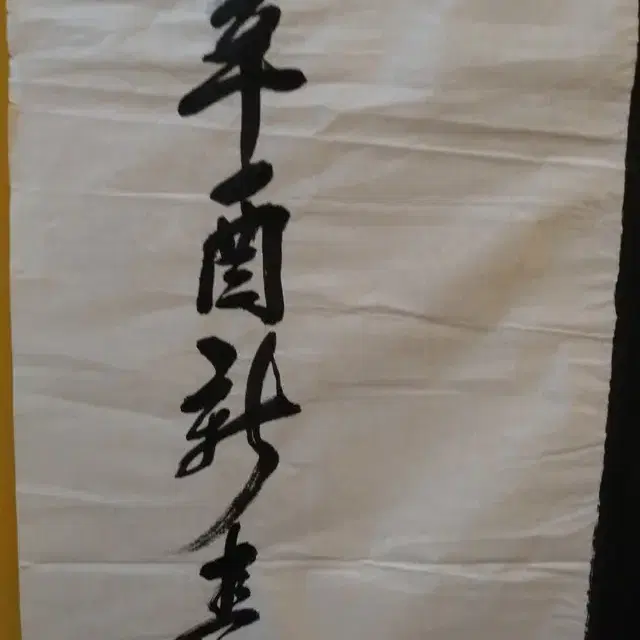 辛酉新春